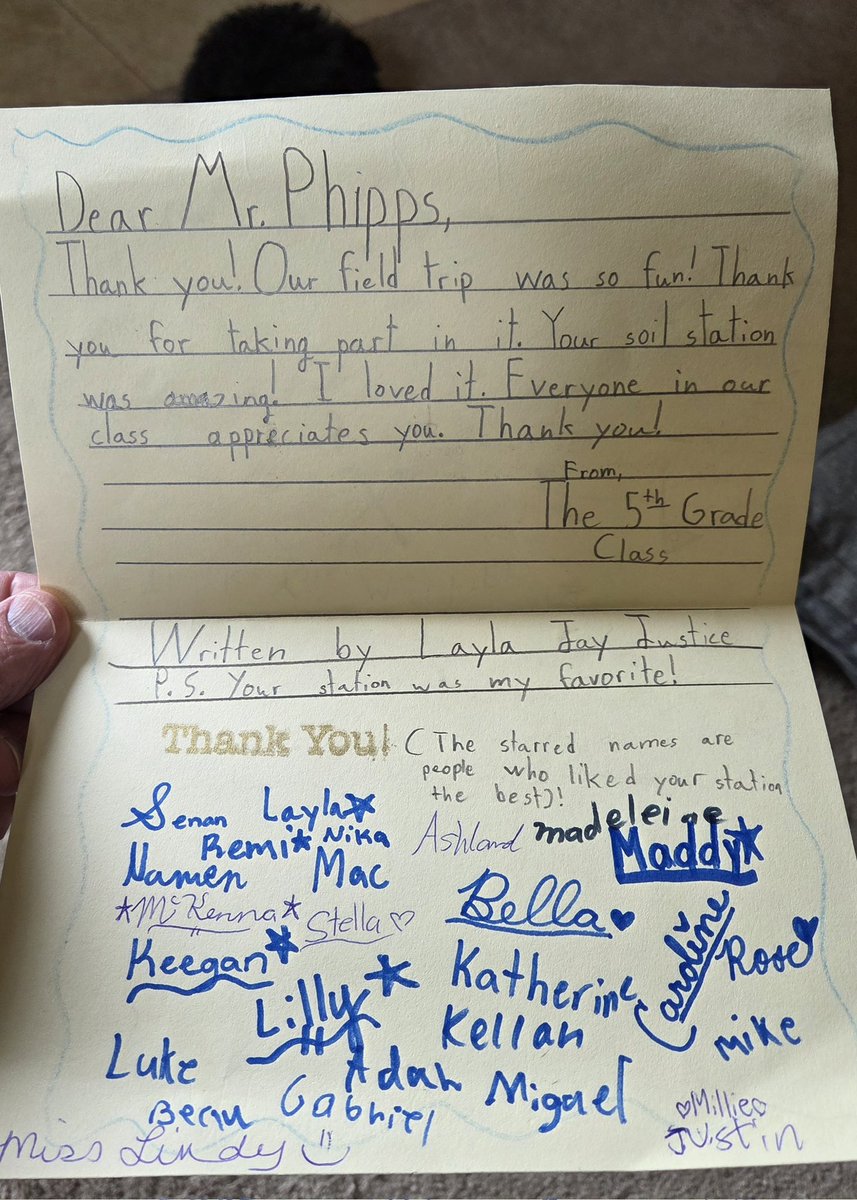 Dear Mr. Phipps,
Thank you! Our field trip was so fun! Thank
you for taking part in it. Your soil station
was amazing! I loved it. Everyone in our
class appreciates you. Thank you!
From,
The 5th Grade
Class
Written by Layla Jay Justice
P.S. Your station was my favorite!
Thank You! (The starred names are
people who liked your station
the best)!
Senan Layla
Remi Nika
Ashland madeleine
Maddy
Namen Mac
McKenna Stella
Bella
Caroline
Rose
Keegan
Katherine
Lilly
Kellan
mike
Luke
Adah
Miguel
Beau Gabriel
Millie
Justin
Miss Lindy